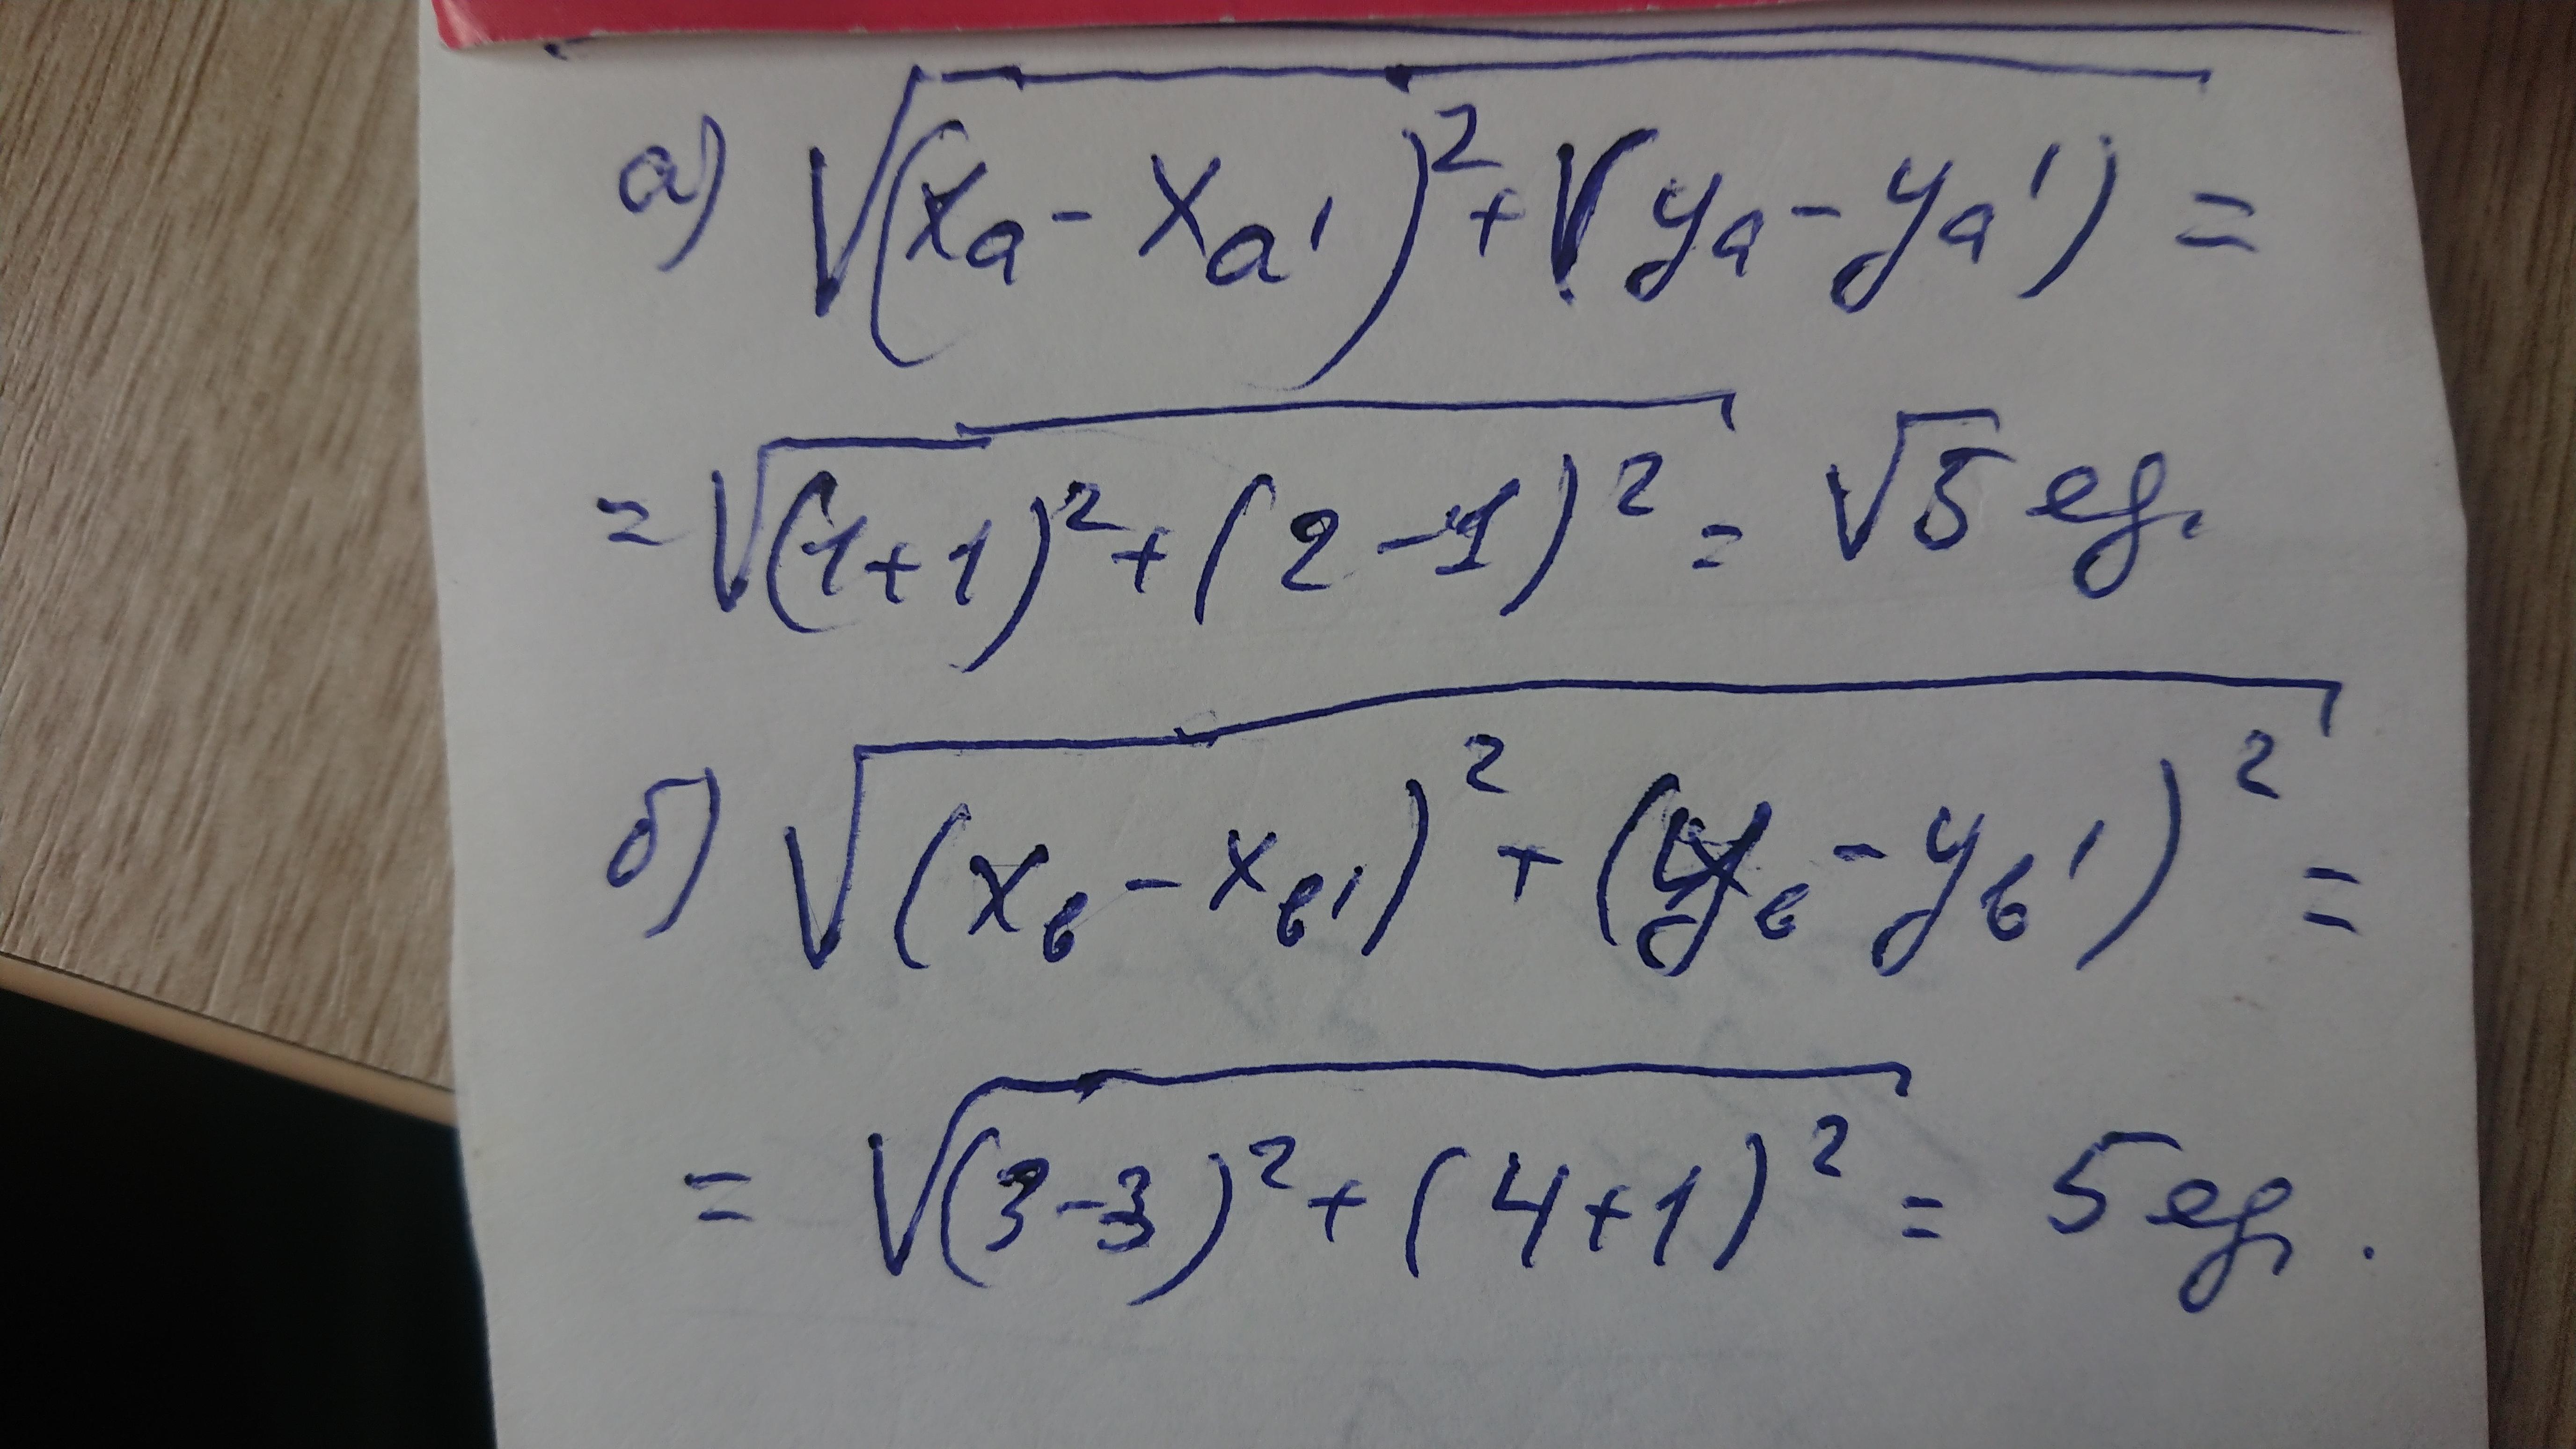 а) √(xₐ - xₐ')² + (yₐ - yₐ') =
= √(1+1)² + (2-1)² = √5 ед.
б) √(xв - xв')² + (yв - yв')² =
= √(3-3)² + (4+1)² = 5 ед.